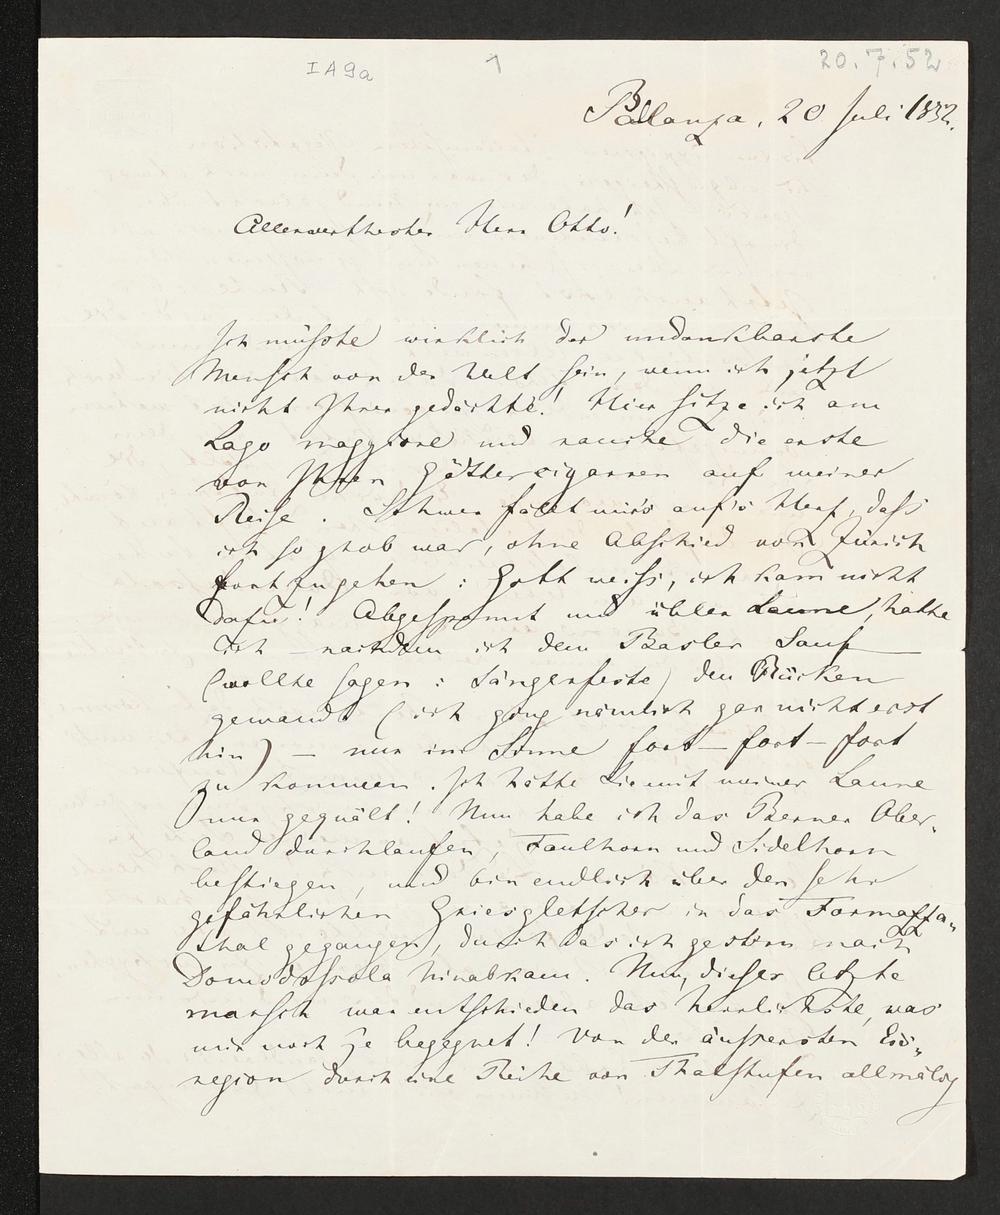 I A 9a
1
20.7.52
Pallanza, 20 Juli 1852.
Allerwerthester Herr Otto!
Ich müsste wirklich der undankbarste
Mensch von der Welt sein, wenn ich jetzt
nicht Ihrer gedächte! Hier sitze ich am
Lago maggiore und rauche die erste
von Ihren Göttercigarren auf meiner
Reise. Schwer fällt mir's auf's Herz, dass
ich so grob war, ohne Abschied von Zürich
fortzugehen: Gott weiss, ich kann nicht
dafür! Abgespannt und übler Laune, hatte
ich – nachdem ich dem Basler Sauf –
(wollte sagen: Sängerfeste) den Rücken
gewandt (ich ging nämlich gar nicht erst
hin) – nur im Sinne fort – fort – fort
zu kommen. Ich hätte Sie mit meiner Laune
nur gequält! Nun habe ich das Berner Ober-
land durchlaufen, Faulhorn und Sidelhorn
bestiegen, und bin endlich über den sehr
gefährlichen Griesgletscher in das Formazza-
thal gegangen, durch das ich gestern nach
Domodossola hinabkam. Nun, dieser letzte
marsch war entschieden das herrlichste, was
mir noch je begegnet! Von der äussersten Eis-
region durch eine Reihe von Thalstufen allmälig